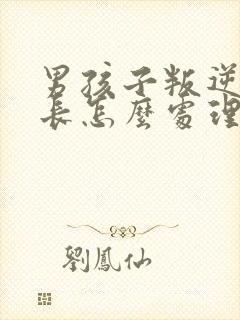 男孩子叛逆
長怎麼處理
劉鳳仙